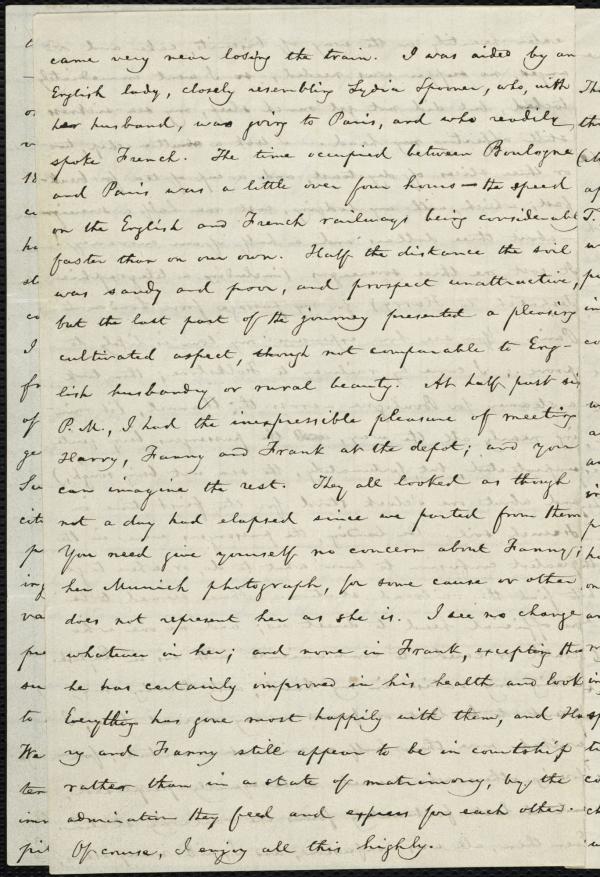 came very near losing the train. I was aided by an
English lady, closely resembling Lydia Spooner, who, with
her husband, was going to Paris, and who readily
spoke French. The time occupied between Boulogne
and Paris was a little over four hours — the speed
on the English and French railways being considerably
faster than on our own. Half the distance the soil
was sandy and poor, and prospect unattractive,
but the last part of the journey presented a pleasing
cultivated aspect, though not comparable to Eng-
lish husbandry or rural beauty. At half past six
P. M., I had the inexpressible pleasure of meeting
Harry, Fanny and Frank at the depot; and you
can imagine the rest. They all looked as though
not a day had elapsed since we parted from them
You need give yourself no concern about Fanny;
her Munich photograph, for some cause or other
does not represent her as she is. I see no change
whatever in her; and none in Frank, excepting tha
he has certainly improved in his health and look
Everything has gone most happily with them, and Har
ry and Fanny still appear to be in courtship
rather than in a state of matrimony, by the
admiration they feel and express for each other.
Of course, I enjoy all this highly.